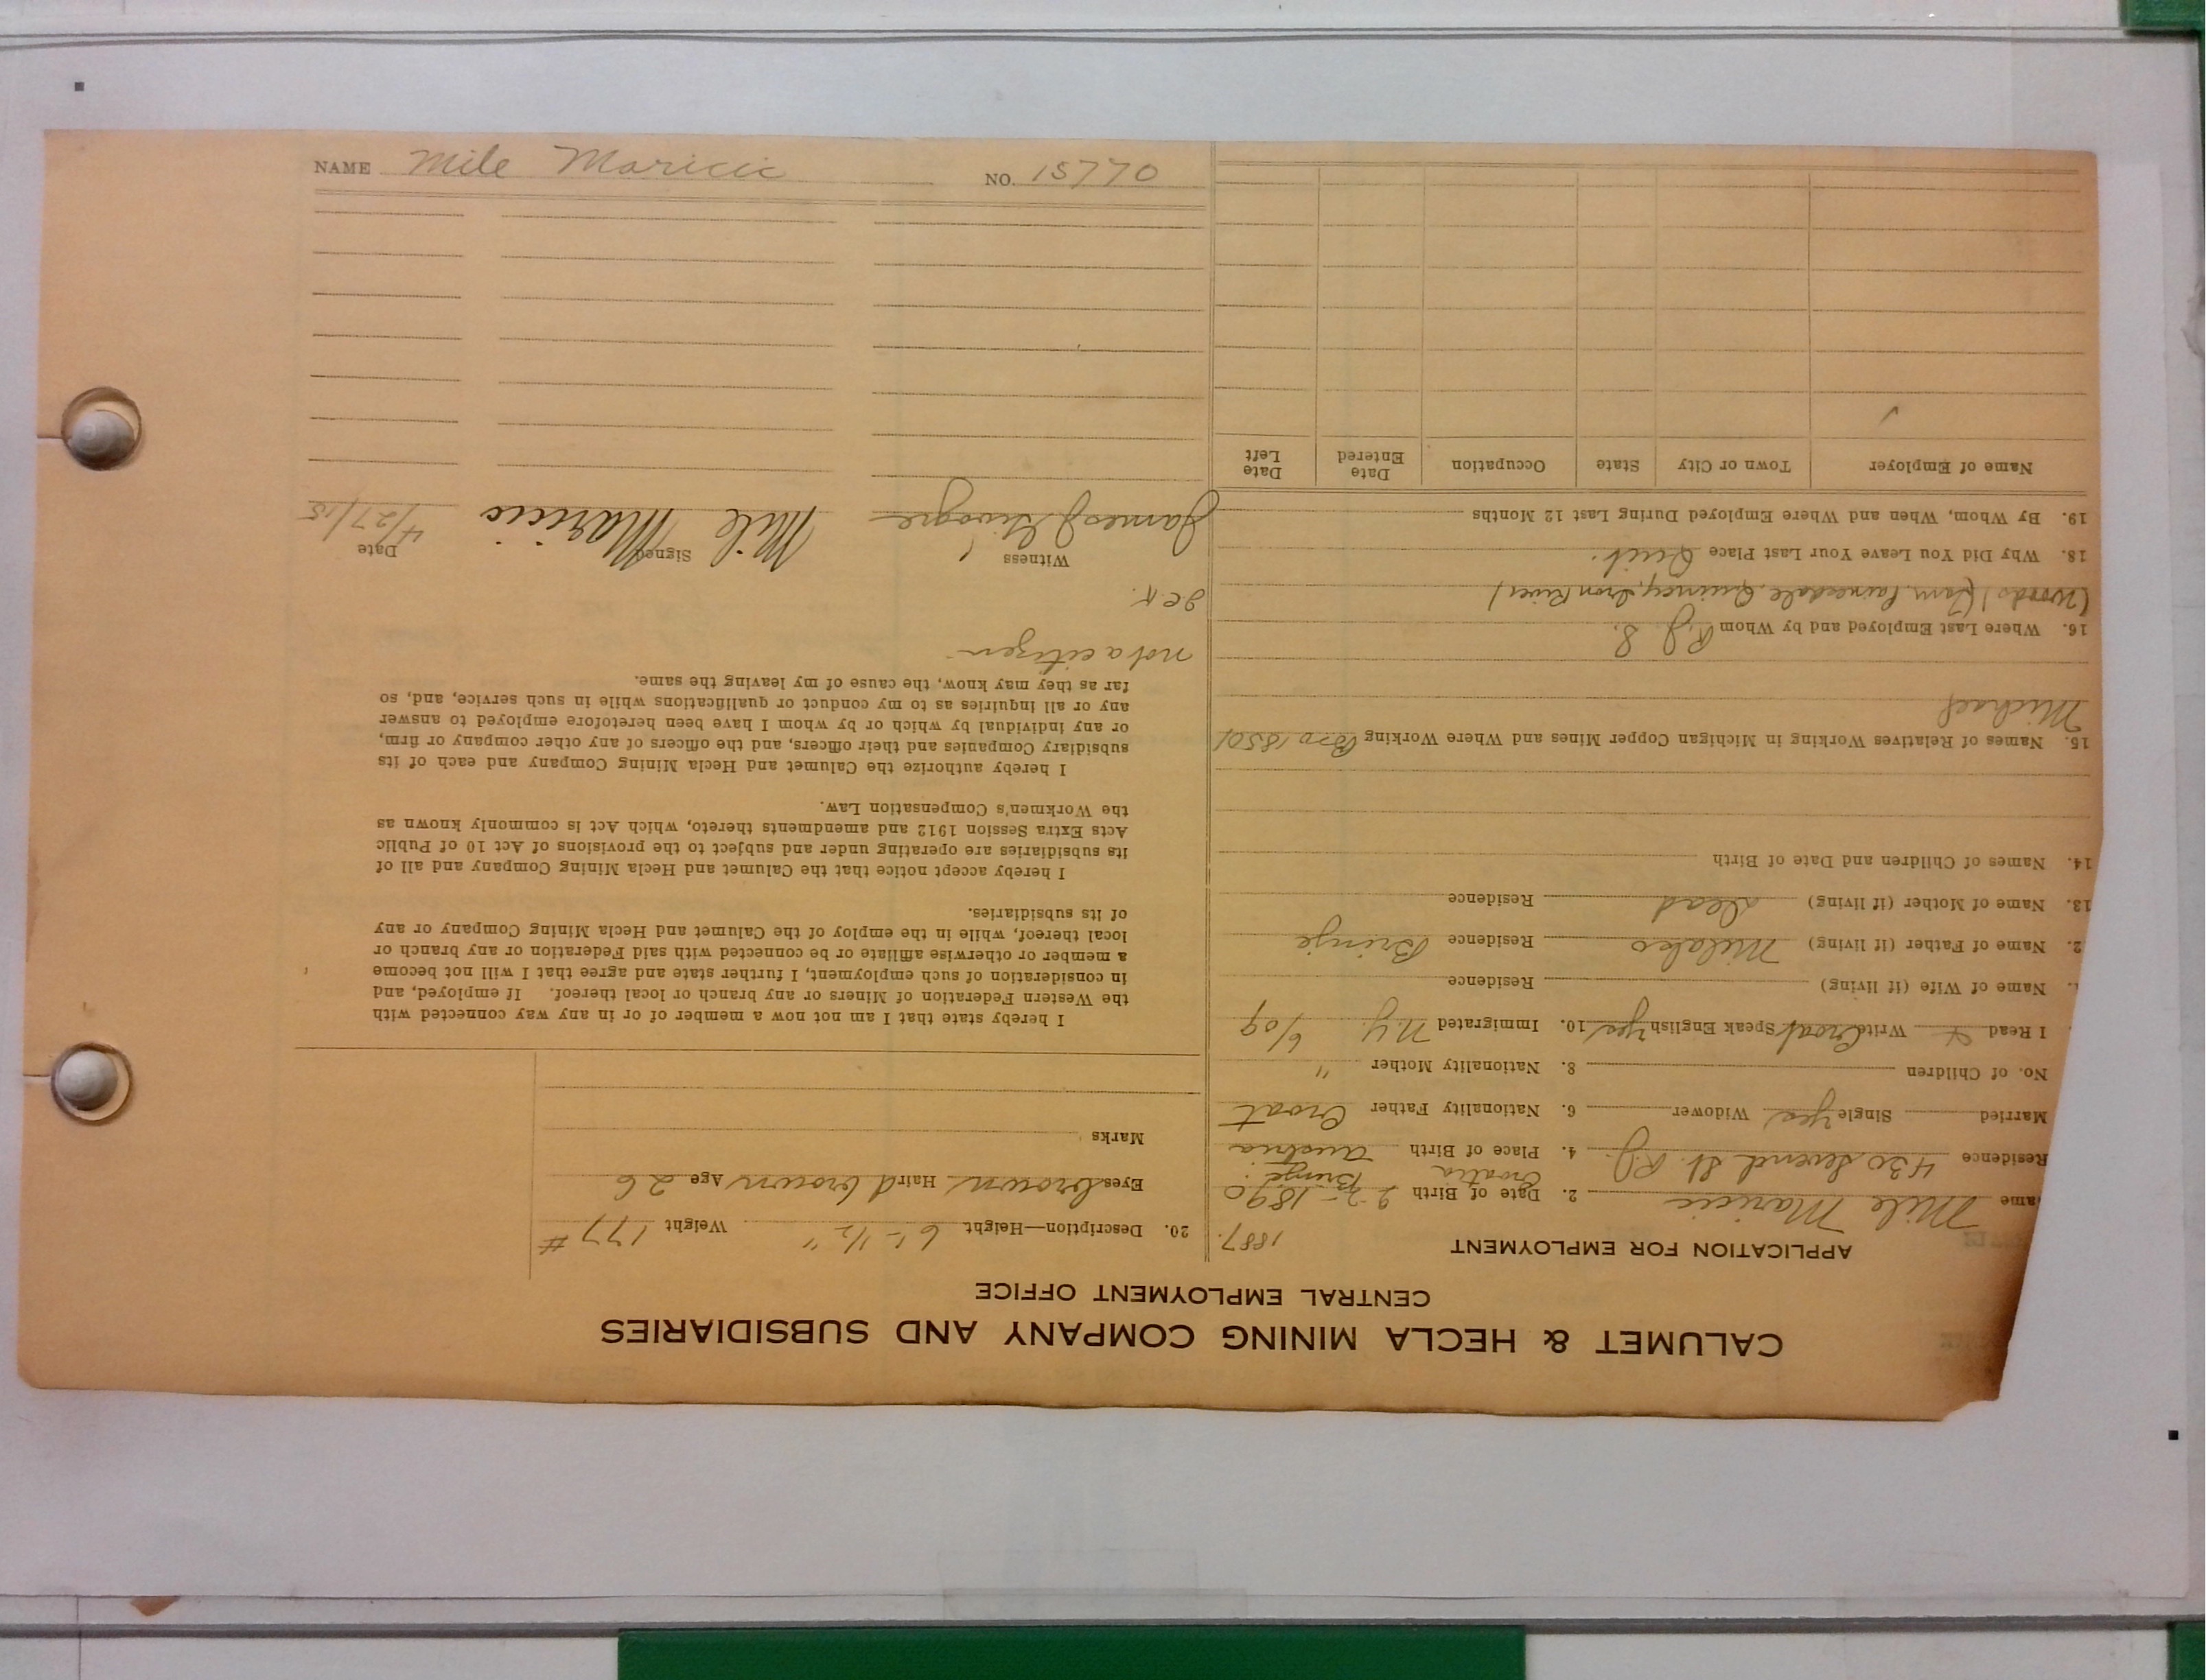 NAME Mile Maricic NO. 15770
CALUMET & HECLA MINING COMPANY AND SUBSIDIARIES
CENTRAL EMPLOYMENT OFFICE
APPLICATION FOR EMPLOYMENT
1887.
ame Mile Maricic 2. Date of Birth 1890
Croatia Brinje
Residence 430 Seventh St. R.J. 4. Place of Birth Austria
Married Single yes Widower 6. Nationality Father Croat
No. of Children 8. Nationality Mother "
I Read & Write Croat Speak English yes 10. Immigrated N.Y. 6/09
Name of Wife (if living) Residence
2. Name of Father (if living) Milako Residence Brinje
13. Name of Mother (if living) Dead Residence
14. Names of Children and Date of Birth
15. Names of Relatives Working in Michigan Copper Mines and Where Working Bro 18501
Michael
16. Where Last Employed and by Whom R.J. S.
(Woods) (Tam. Painesdale, Quincy, Iron River)
18. Why Did You Leave Your Last Place Quit.
19. By Whom, When and Where Employed During Last 12 Months
Name of Employer Town or City State Occupation Date Entered Date Left
20. Description—Height 6'-1/2" Weight 177#
Eyes brown Hair d brown Age 26
Marks
I hereby state that I am not now a member of or in any way connected with
the Western Federation of Miners or any branch or local thereof. If employed, and
in consideration of such employment, I further state and agree that I will not become
a member or otherwise affiliate or be connected with said Federation or any branch or
local thereof, while in the employ of the Calumet and Hecla Mining Company or any
of its subsidiaries.
I hereby accept notice that the Calumet and Hecla Mining Company and all of
its subsidiaries are operating under and subject to the provisions of Act 10 of Public
Acts Extra Session 1912 and amendments thereto, which Act is commonly known as
the Workmen's Compensation Law.
I hereby authorize the Calumet and Hecla Mining Company and each of its
subsidiary Companies and their officers, and the officers of any other company or firm,
or any individual by which or by whom I have been heretofore employed to answer
any or all inquiries as to my conduct or qualifications while in such service, and, so
far as they may know, the cause of my leaving the same.
not a citizen
Witness Signed Date
James J Mile Maricic 4/27/15